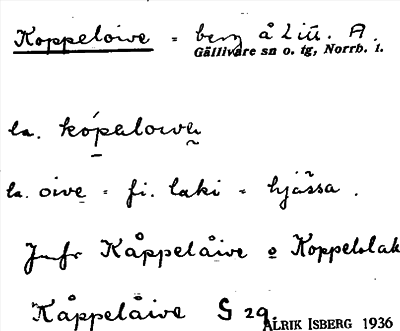 Koppeloive - berg å Litt. A.
Gällivare sn o. tg, Norrb. l.
la. kópelowe
la. oive - fi. laki - hjässa.
Jmfr Kåppelåive o Koppellak
Kåppelåive S 29.
ALRIK ISBERG 1936